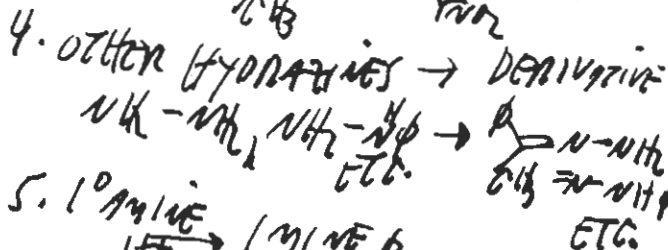 CH3
4. OTHER HYDRAZINES → DERIVATIVE
NH2-NH2, NH2-NHφ → φ =N-NH2
ETC. CH3 =N-NHφ
5. 1° AMINE ETC.
IMINE φ